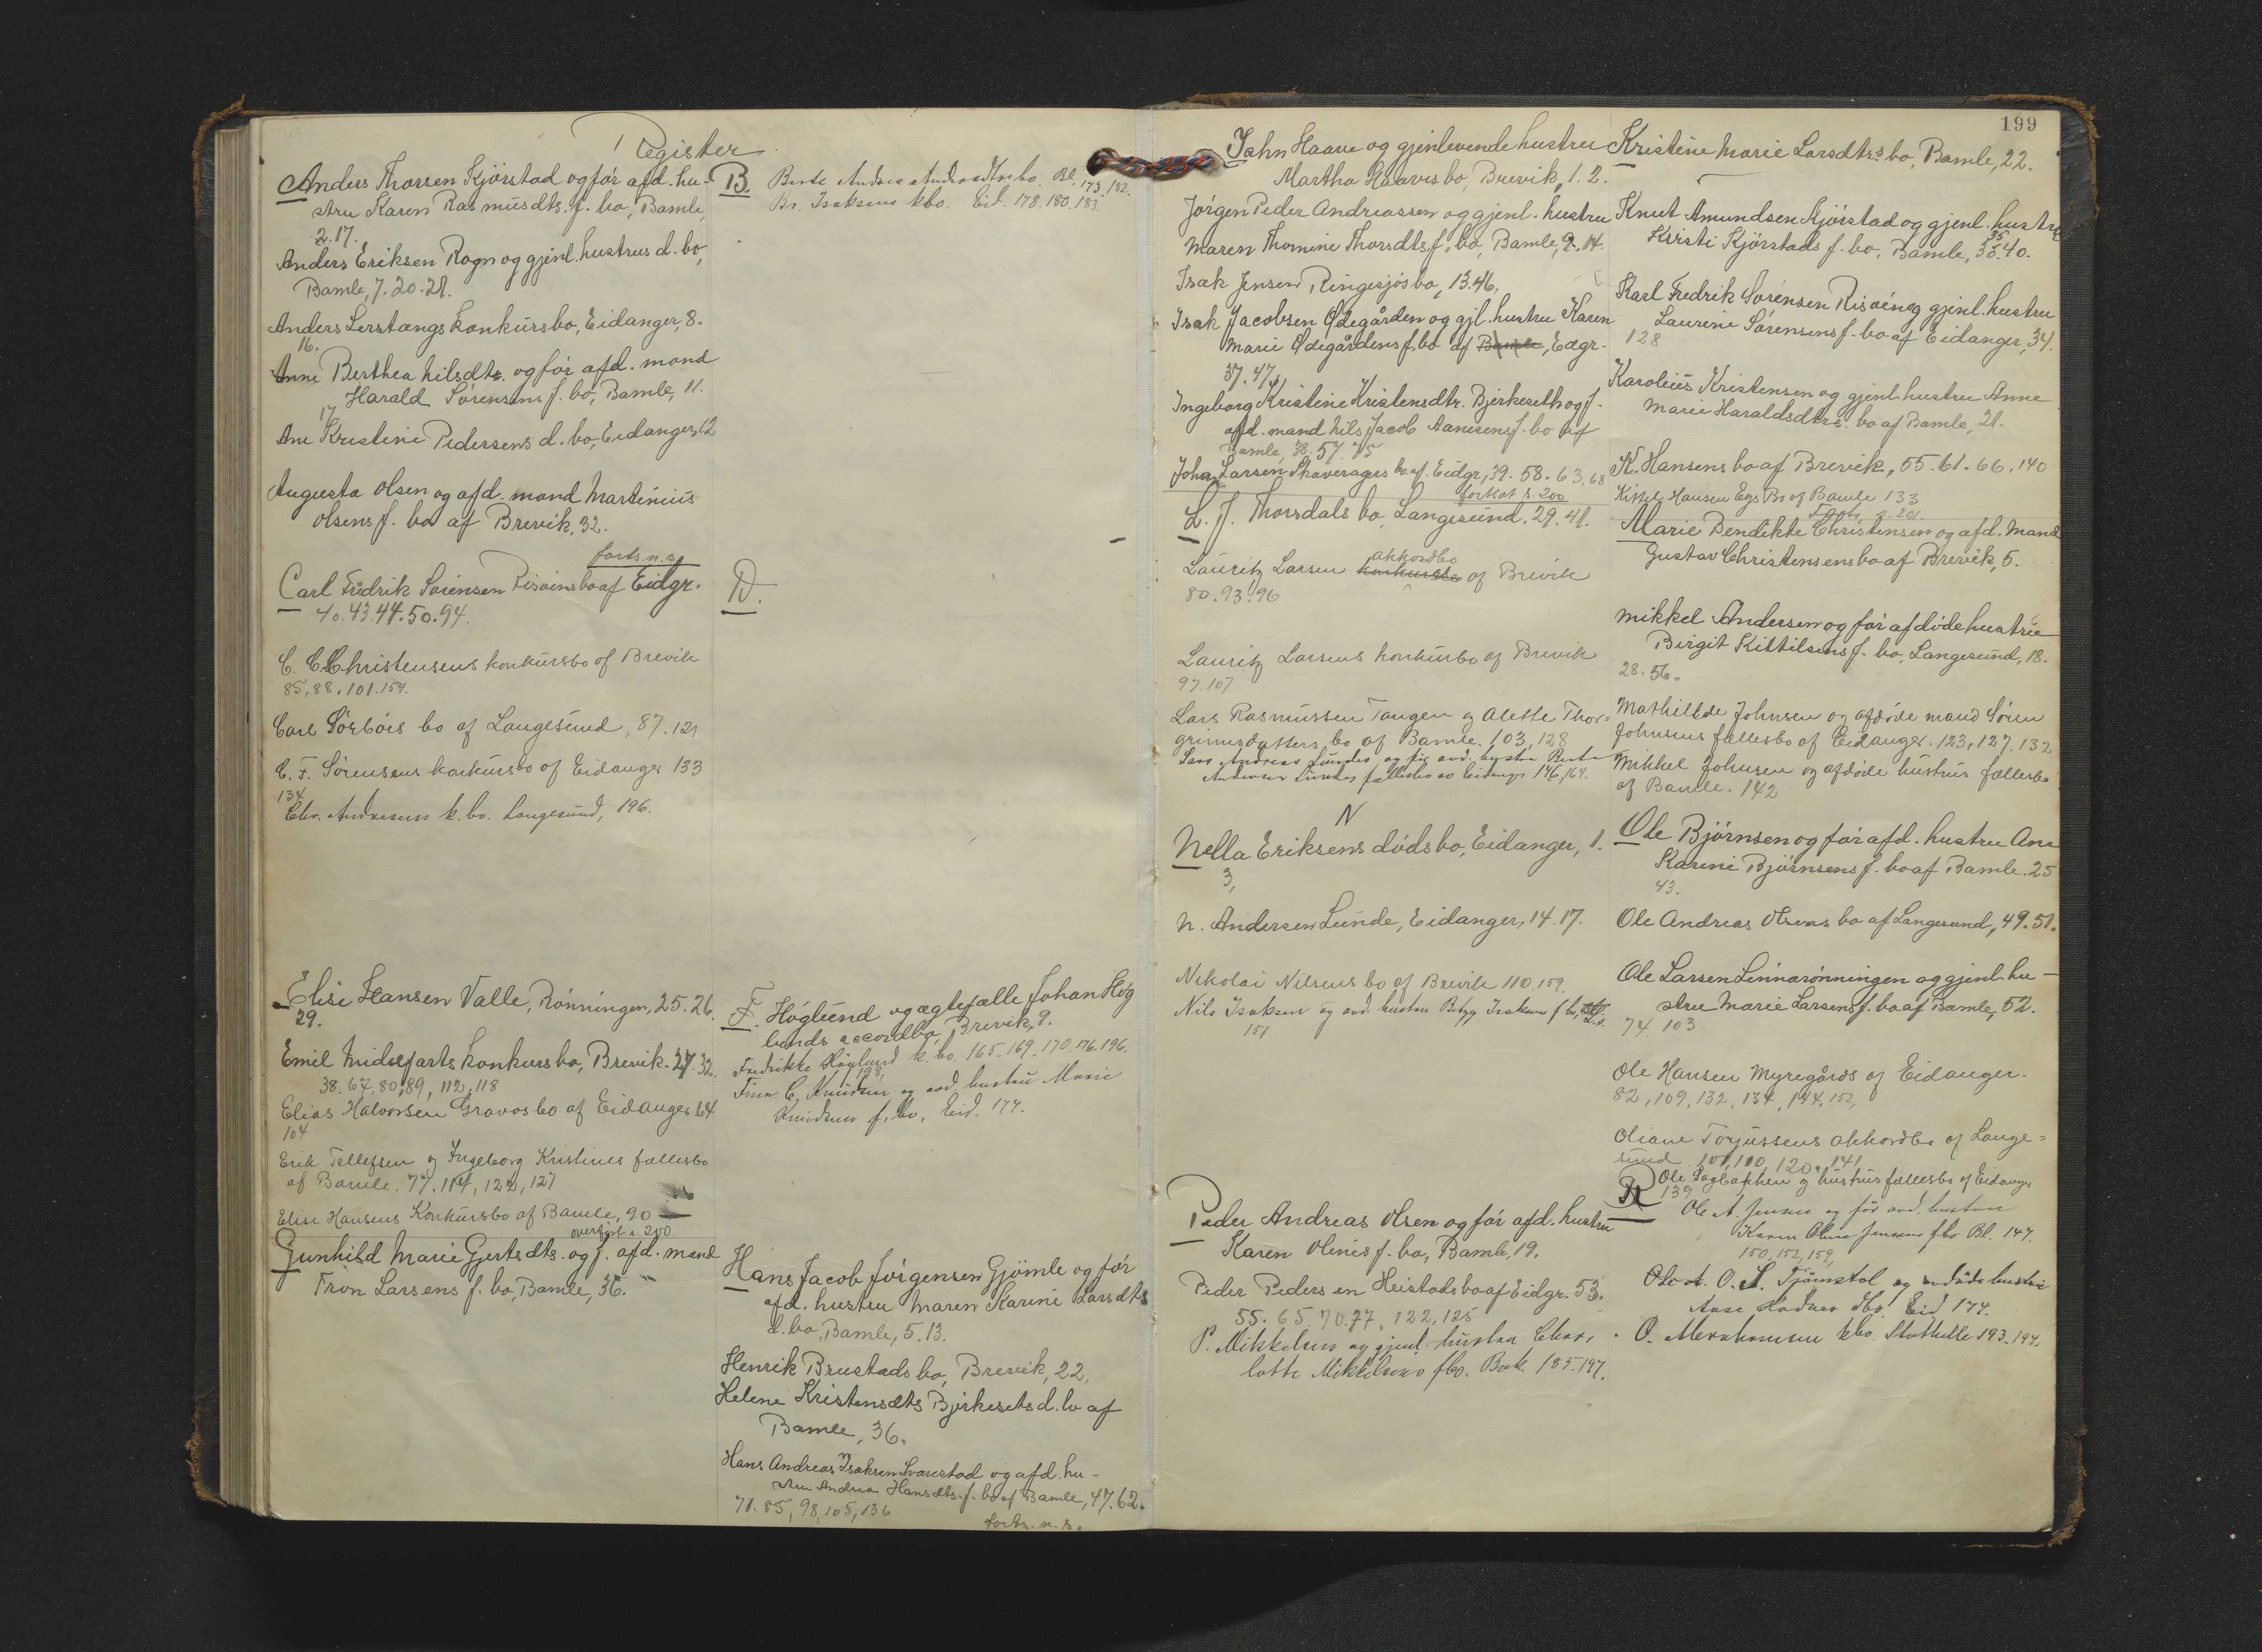 Register
Anders Thorsen Kjörstad og för afd. hu-
stru Karen Rasmusdts. f. bo, Bamle,
2.17.
Anders Eriksen Rogn og gjenl. hustrus d. bo,
Bamle, 7.20.21.
Anders Lerstangs konkursbo, Eidanger, 8.
16.
Anne Berthea Nilsdtr. og för afd. mand
Harald Sörensens f. bo, Bamle, 11.
17
Ane Kristine Pedersens d. bo, Eidanger, 12
Augusta Olsen og afd. mand Martinius
Olsens f. bo af Brevik, 32.
forts n.s.
Carl Fredrik Sörensen Risöens bo af Eidgr.
40.43.44.50.94.
C. C. Christensens konkursbo af Brevik
85, 88, 101.154.
Carl Sörböes bo af Langesund, 87.121
C. F. Sörensens konkursbo of Eidanger 133
134
Chr. Andresens k. bo. Langesund, 196.
Elise Hansen Valle, Rönningen, 25.26.
29.
Emil Midtsfjarts konkursbo, Brevik. 27.32.
38.67.80,89, 112, 118
Elias Halvorsen Gravas bo af Eidanger 64
104
Erik Tellefsen og Ingeborg Kristines fællesbo
af Bamle. 77.114, 122, 127
Elise Hansens Konkursbo af Bamle, 90
overfört s. 200.
Gunhild Marie Gjertsdts. og f. afd. mand
Tron Larsens f. bo, Bamle, 36.
B. Berte Andrea Andersdtrs bo. Bl. 173.192.
Br. Isaksens kbo. Eid. 178.180.183.
D.
F. Höglund og ægtefælle Johan Hög
lunds accordbo, Brevik, 9.
Fredrikke Höglund k. bo. 165.169.170.176.196.
198,
Finn C. Knudsen og avd. hustru Marie
Knudsens f. bo, Eid. 174.
Hans Jacob Jörgensen Gjömle og för
afd. hustru Maren Karine Larsdts
d. bo, Bamle, 5.13.
Henrik Brustads bo, Brevik, 22.
Helene Kristensdts Bjerkesets d. bo af
Bamle, 36.
Hans Andreas Isaksen Svarstad og afd. hu-
stru Andrea Hansdts. f. bo af Bamle, 47.62.
71.85, 98, 105, 136
forts. n. s.
199
John Haave og gjenlevende hustru
Martha Haaves bo, Brevik, 1.2.
Jörgen Peder Andreassen og gjenl. hustru
Maren Thomine Thorsdts f. bo, Bamle, 9.14.
Isak Jensen Ringesjös bo, 13.46.
Isak Jacobsen Ödegården og gjl. hustru Karen
Marie Ödegårdens f. bo af Bamle, Edgr.
37.47.
Ingeborg Kristine Kristensdtr. Bjerkeseth og f.
afd. mand Nils Jacob Aanesens f. bo af
Bamle, 38.57.75
Johan Larsen Skaverages bo af Eidgr, 39.58.63,68
forts s. 200
L. J. Thorsdals bo, Langesund. 29.41.
akkordbo
Lauritz Larsen konkursbo af Brevik
80.93.96
Lauritz Larsens konkursbo af Brevik
97.107
Lars Rasmussen Tangen og Alette Thor-
grimsdatters bo af Bamle. 103, 128
Lars Andreas Lundes og för avd. hustru Berte
Andersen Lundes fællesbo av Eidanger 146, 164.
N
Nella Eriksens dödsbo, Eidanger, 1.
3,
N. Andersen Lunde, Eidanger, 14.17.
Nikolai Nilsens bo af Brevik 110, 159.
Nils Isaksen og avd. hustru Betzy Isaksens f. bo, Eid.
151
Peder Andreas Olsen og för afd. hustru
Karen Olines f. bo, Bamle, 19.
Peder Pedersen Heistads bo af Eidgr. 53.
55.65.70.77, 122, 125
P. Mikkelsen og gjenl. hustru Char-
lotte Mikkelsens fbo. Bvk 185.197.
Kristine Marie Larsdtrs bo, Bamle, 22.
Knut Amundsen Kjörstad og gjenl. hustru
Kirsti Kjörstads f. bo, Bamle, 35.40.
Karl Fredrik Sörensen Risöen og gjenl. hustru
Laurine Sörensens f. bo af Eidanger, 34.
128
Karolius Kristensen og gjenl. hustru Anne
Marie Haraldsdtrs. bo af Bamle, 21.
K. Hansens bo af Brevik, 55.61.66, 140
Kittel Hansen Eegs Bo af Bamle 133
Forts s. 201.
Marie Bendikte Christensen og afd. mand
Gustav Christensens bo af Brevik, 5.
Mikkel Andersen og för afdöde hustrue
Birgit Kittilsens f. bo, Langesund, 18.
28.56.
Mathilde Johnsen og afdöde mand Sören
Johnsens fællesbo af Eidanger. 123, 127, 132
Mikkel Johnsen og afdöde hustrus fællesbo
af Bamle. 142
Ole Björnsen og för afd. hustru Ane
Karine Björnsens f. bo af Bamle. 25
43.
Ole Andreas Olsens bo af Langesund, 49.51.
Ole Larsen Linnarönningen og gjenl. hu-
stru Marie Larsens f. bo af Bamle, 52.
74.103
Ole Hansen Myregårds af Eidanger.
82, 109, 132, 134, 144, 152,
Oliane Torjussens akkordbo af Lange-
sund 101, 110, 120, 141
Ole Dagbakken og hustrus fællesbo af Eidanger
R 139
Ole A. Jensen og för avd. hustru
Karen Oline Jensens fbo Bl. 147.
150, 152, 159,
O. A. Tjömstol og avdöde hustru
Anne Hadnes dbo Eid 174.
O. Abrahamsen kbo, Stathelle 193.194.